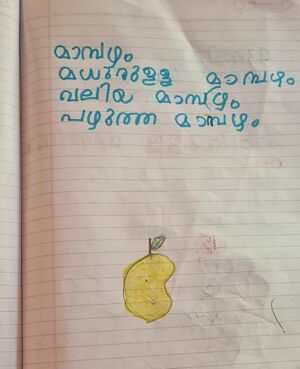 മാമ്പഴം
മധുരുള്ള മാമ്പഴം
വലിയ മാമ്പഴം
പഴുത്ത മാമ്പഴം